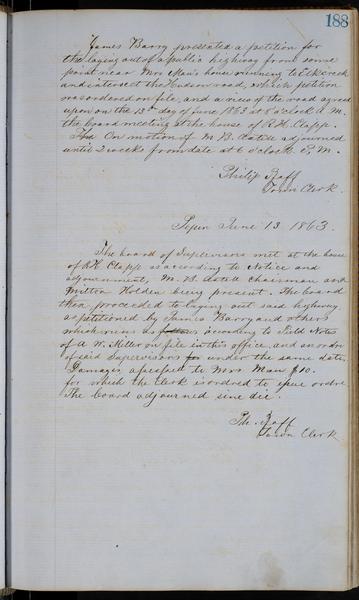 188
James Barry presented a petition for
the laying out of a public highway from some
point near Mrs Man's house running to Elk creek
and intersect the Hudson road, which petition
was ordered on file, and a view of the road agreed
upon on the 13th day of June 1863 at 8 o'clock A. M.
the board meeting at the house of R. H. Clapp.
On motion of M. B. Axtell adjourned
until 2 weeks from date at 6 o'clock P. M.
Philip Raff
Town Clerk.
Pepin June 13 1863.
The board of Supervisors met at the house
of R H. Clapp as according to Notice and
adjournment, M. B. Axtell Chairman and
Milton Holden being present. The board
then proceeded to laying out said highway
as petitioned by James Barry and others
which runs as follows according to Field Notes
of A. W. Miller on file in this office, and an order
of said Supervisors for under the same date,
Damages assessed to Mrs Man $10.
for which the Clerk is ordred to issue order.
The board adjourned sine die.
Ph. Raff
Town Clerk